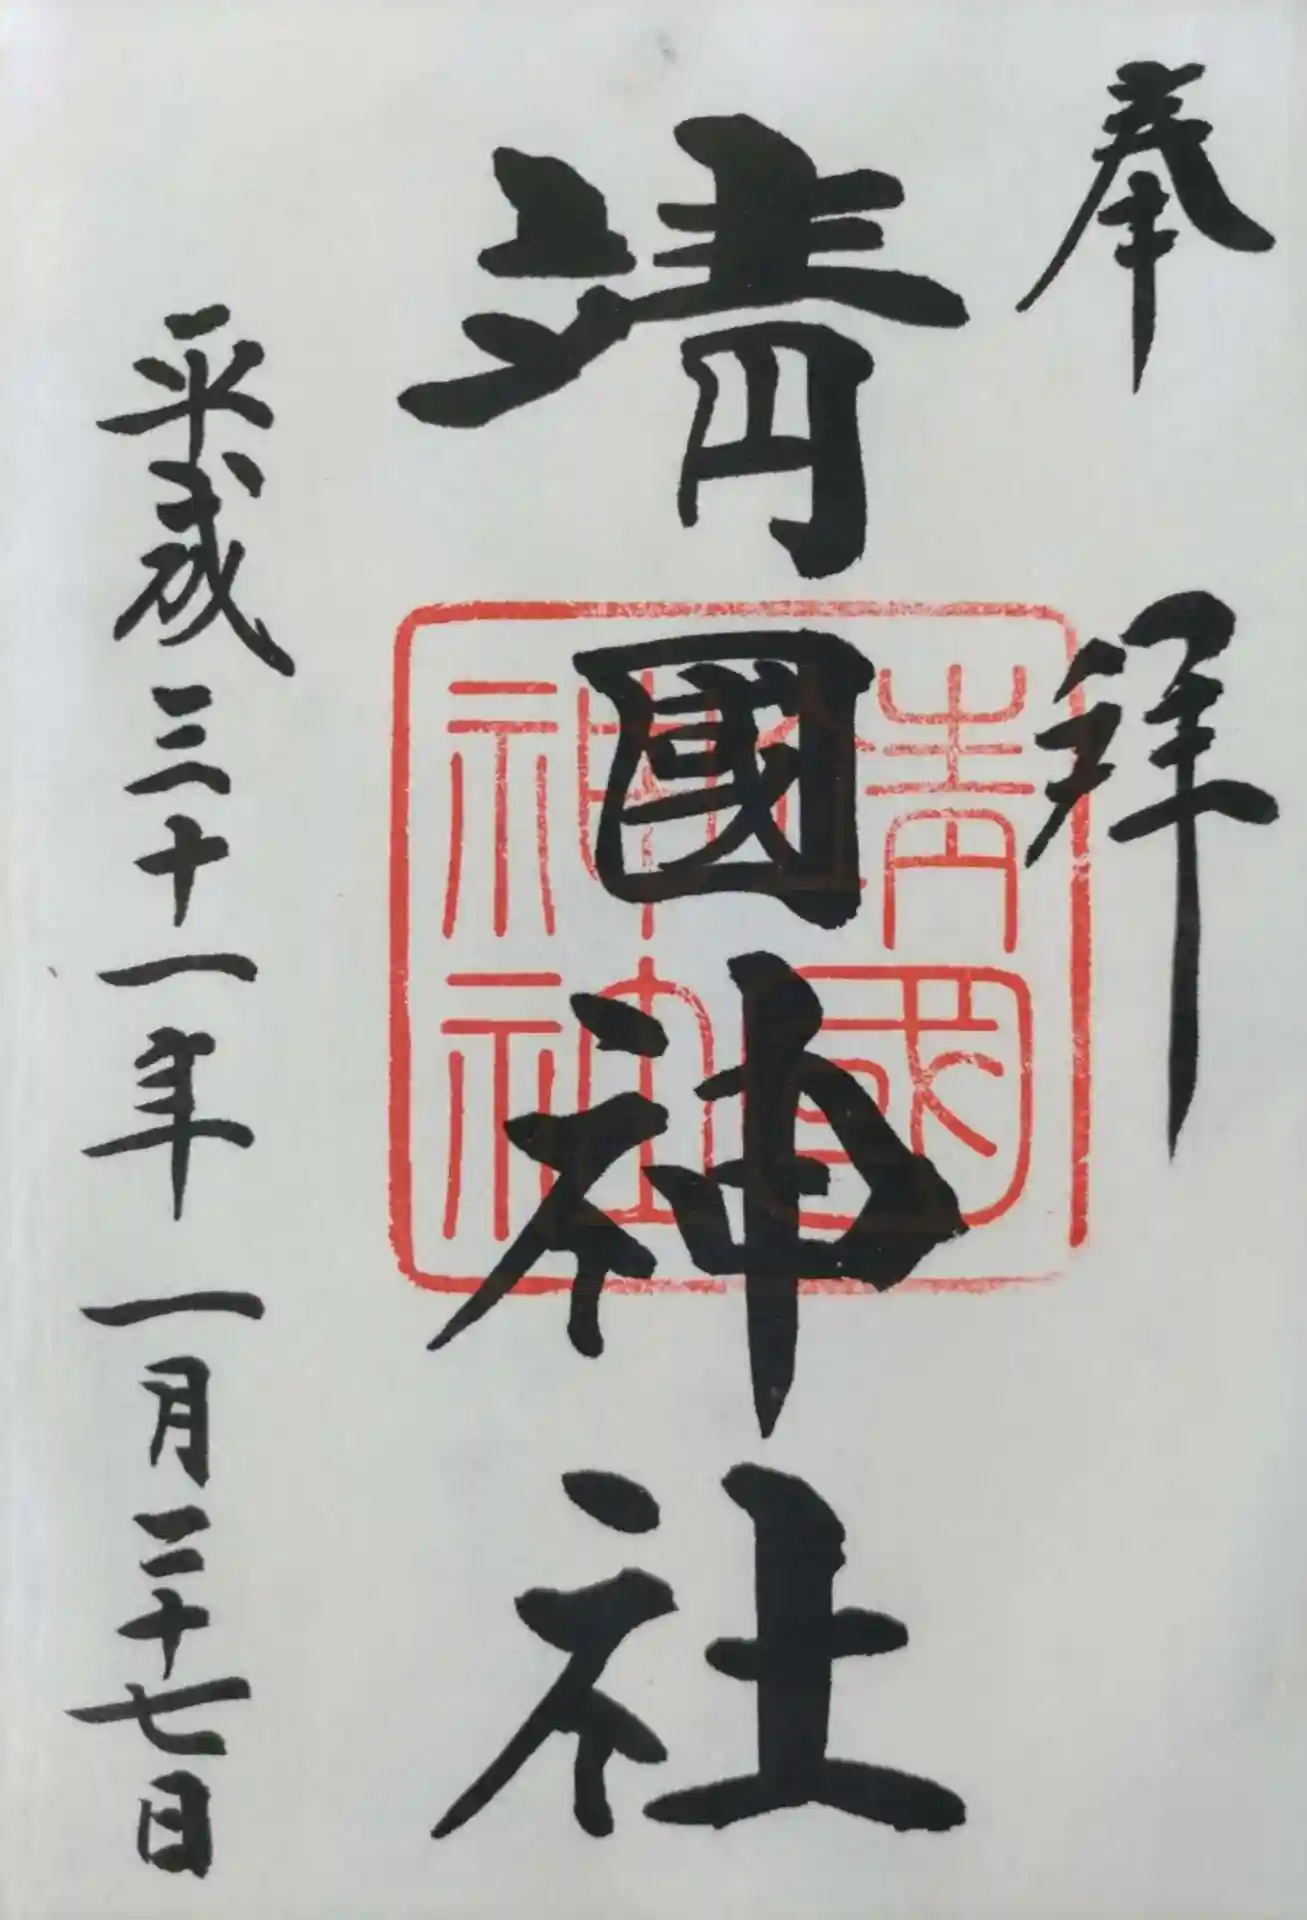 奉拝
靖國神社
靖國
神社
平成三十一年一月二十七日